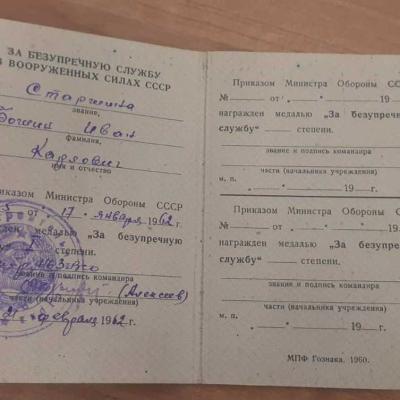 ЗА БЕЗУПРЕЧНУЮ СЛУЖБУ
В ВООРУЖЕННЫХ СИЛАХ СССР
Старшина
звание,
Иван
фамилия,
Карлович
имя и отчество
Приказом Министра Обороны СССР
5 от 17 января 1962 г.
медалью „За безупречную
степени.
звание и подпись командира
(Алексеев)
части (начальника учреждения)
21 февраля 1962 г.
Приказом Министра Обороны СССР
№ от „ “ 19 г.
награжден медалью „За безупречную
службу“ степени.
звание и подпись командира
части (начальника учреждения)
м. п. „ “ 19 г.
Приказом Министра Обороны СССР
№ от „ “ 19 г.
награжден медалью „За безупречную
службу“ степени.
звание и подпись командира
части (начальника учреждения)
м. п. „ “ 19 г.
МПФ Гознака. 1960.